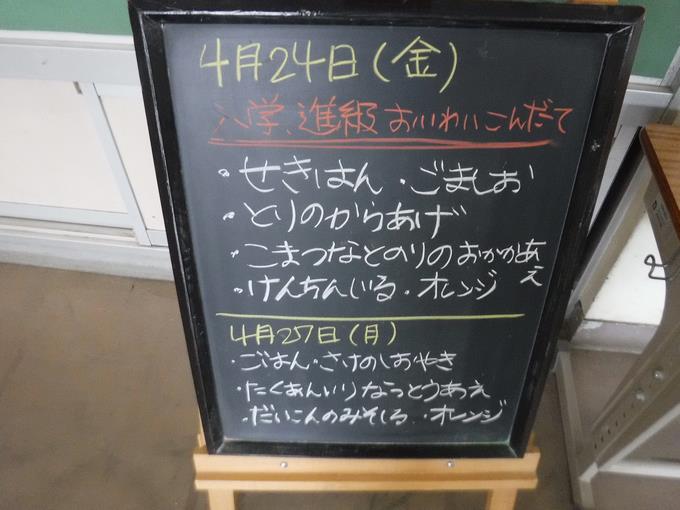 4月24日(金)
入学、進級 おいわいこんだて
・せきはん ・ごましお
・とりのからあげ
・こまつなとのりのおかかあえ
・けんちんじる・オレンジ
4月27日(月)
・ごはん・さけのしおやき
・たくあんいりなっとうあえ
・だいこんのみそしる ・オレンジ